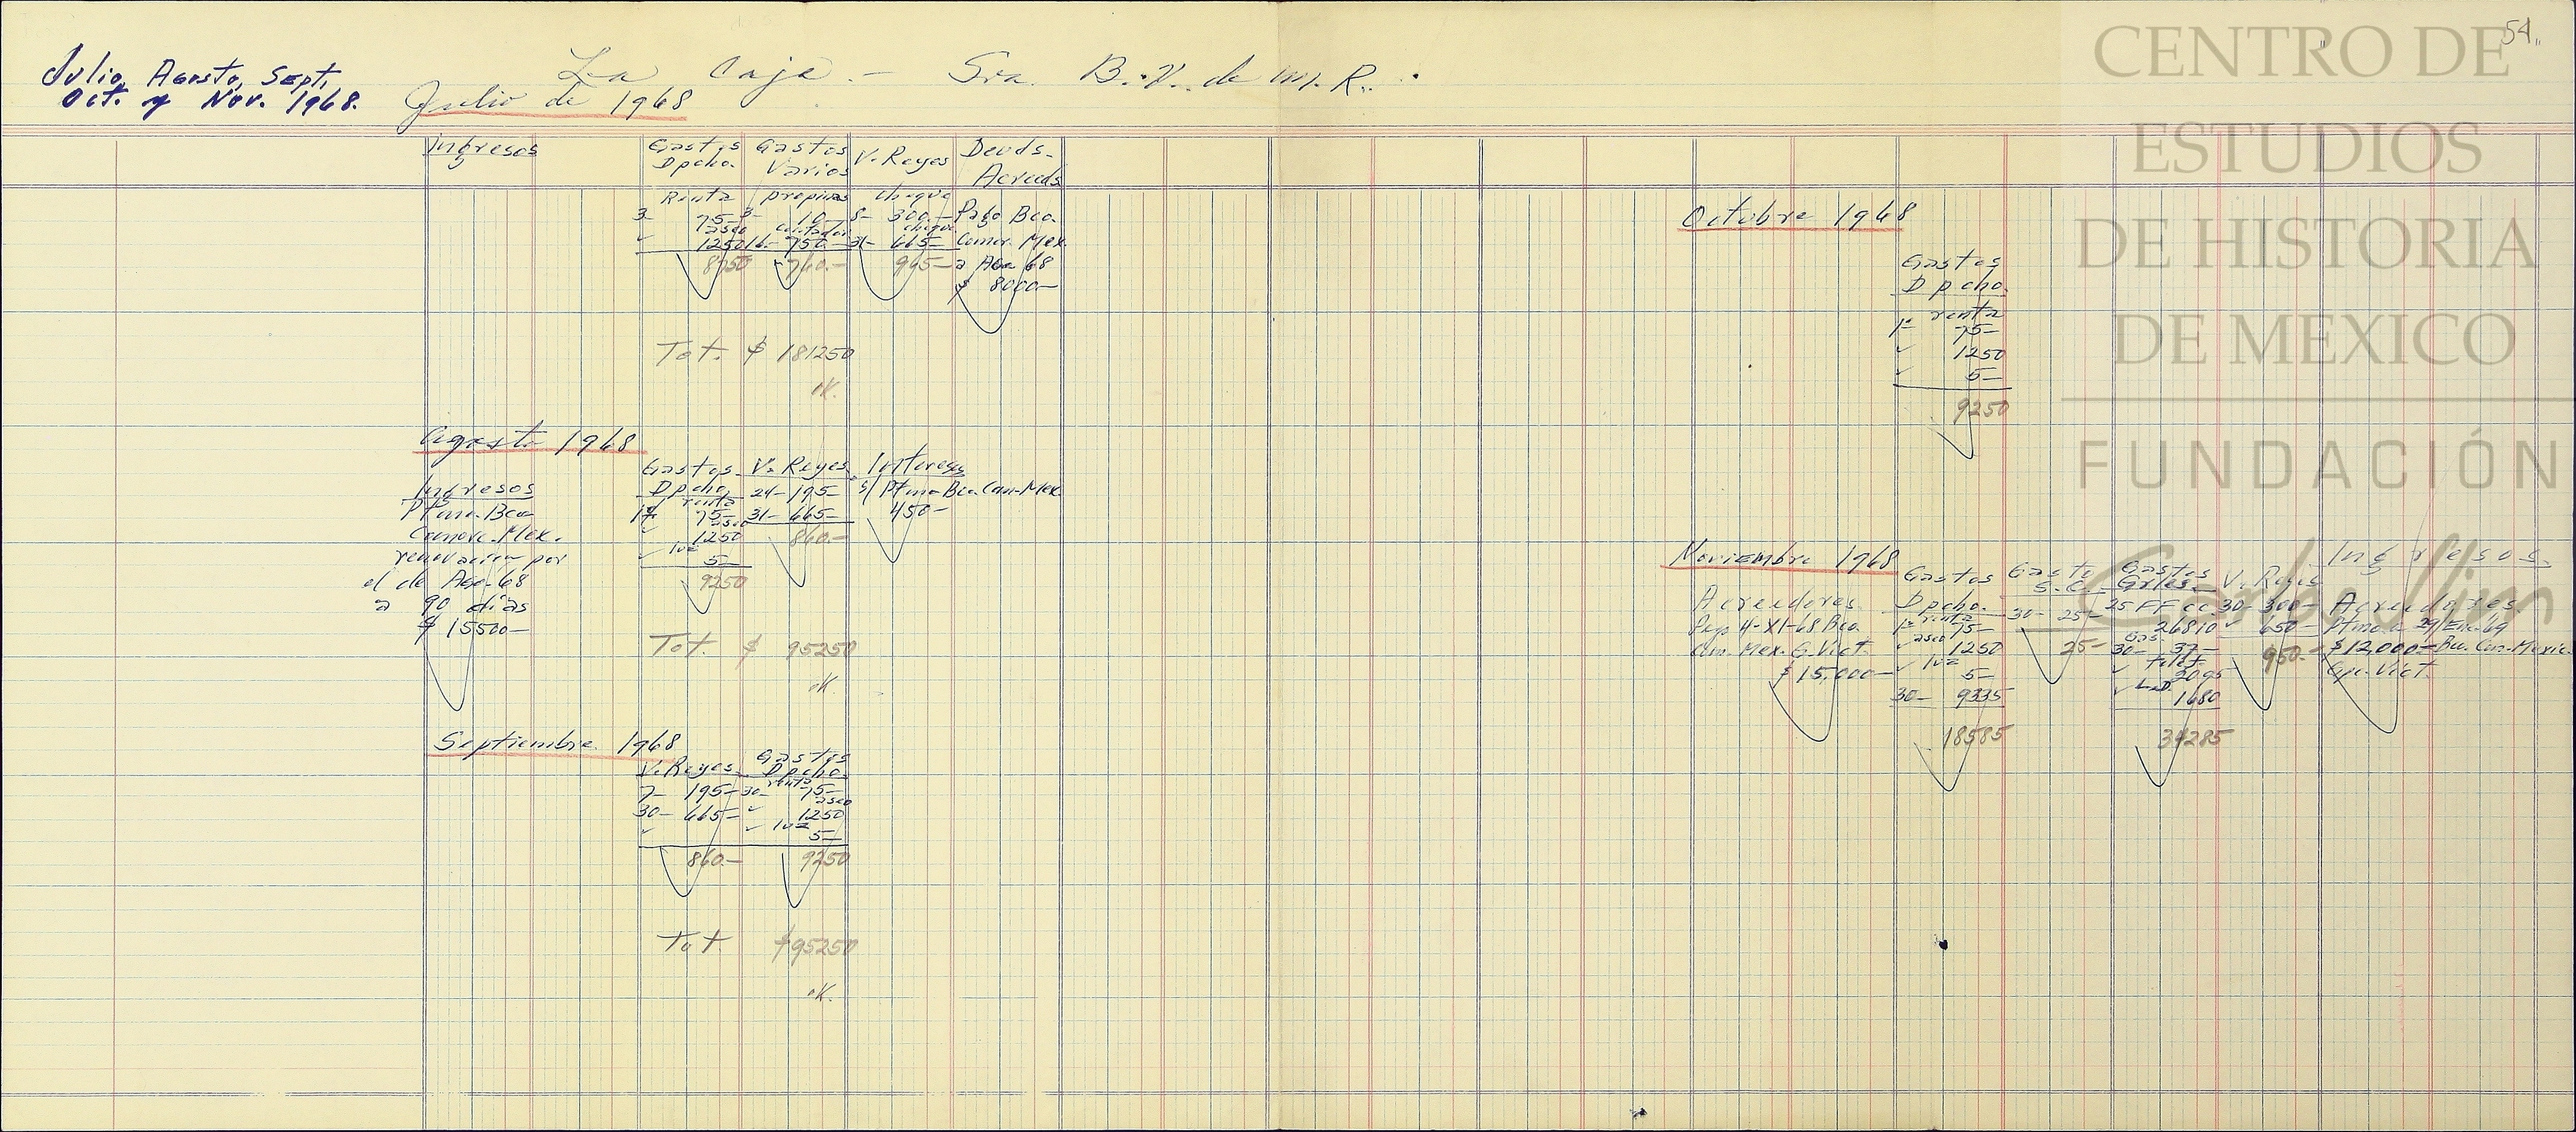 54
Julio, Agosto, Sept,
Oct. y Nov. 1968.
La Caja.- Sra. B. V. de M. R.
Julio de 1968
Ingresos
Gastos Dpcho.
Renta
3- 75-
aseo
✓ 1250
8750
Gastos Varios
propinas
3- 10-
contador
16- 750-
760.-
V. Reyes
cheque
8- 300.-
cheque
31- 665-
965-
Deuds- Acreeds
Pago Bco.
Comer. Mex.
a Ago 68
$ 8000-
Tot. $ 181250
ok.
Agosto 1968
Ingresos
Ptmo. Bco
Comerc. Mex.
renovación por
el de Ago-68
a 90 días
$ 15500-
Gastos
Dpcho
renta
1º 75-
aseo
✓ 1250
✓ luz
5-
9250
V. Reyes
24- 195-
31- 665-
860.-
Intereses
s/ Ptmo Bco. Com-Mex
450-
Tot. $ 95250
ok.
Septiembre 1968
V. Reyes
7- 195-
30- 665-
860.-
Gastos
Dpcho
renta
30- 75-
aseo
✓ 1250
✓ luz
5-
9250
Tot. $95250
ok.
Octubre 1968
Gastos
Dpcho.
renta
1º 75-
✓ 1250
✓ 5-
9250
Noviembre 1968
Acreedores
Pago 4-XI-68 Bco.
Com. Mex. G. Vict.
$ 15,000-
Gastos
Dpcho.
renta
1º 75-
aseo
✓ 1250
✓ luz
5-
30- 9335
18585
Gasto
S. C.
30- 25-
25-
Gastos
Grles.
25 FF cc
26810
Gas.
30- 37-
✓ telef.
2095
✓ L.D.
1680
34285
V. Reyes
30- 300-
✓ 650-
950.-
Ingresos.
Acreedores
Ptmo a 29/En-69
$12,000- Bco. Com. Mexic.
Gpe. Vict.
CENTRO DE
ESTUDIOS
DE HISTORIA
DE MEXICO
FUNDACIÓN
Carlos Slim